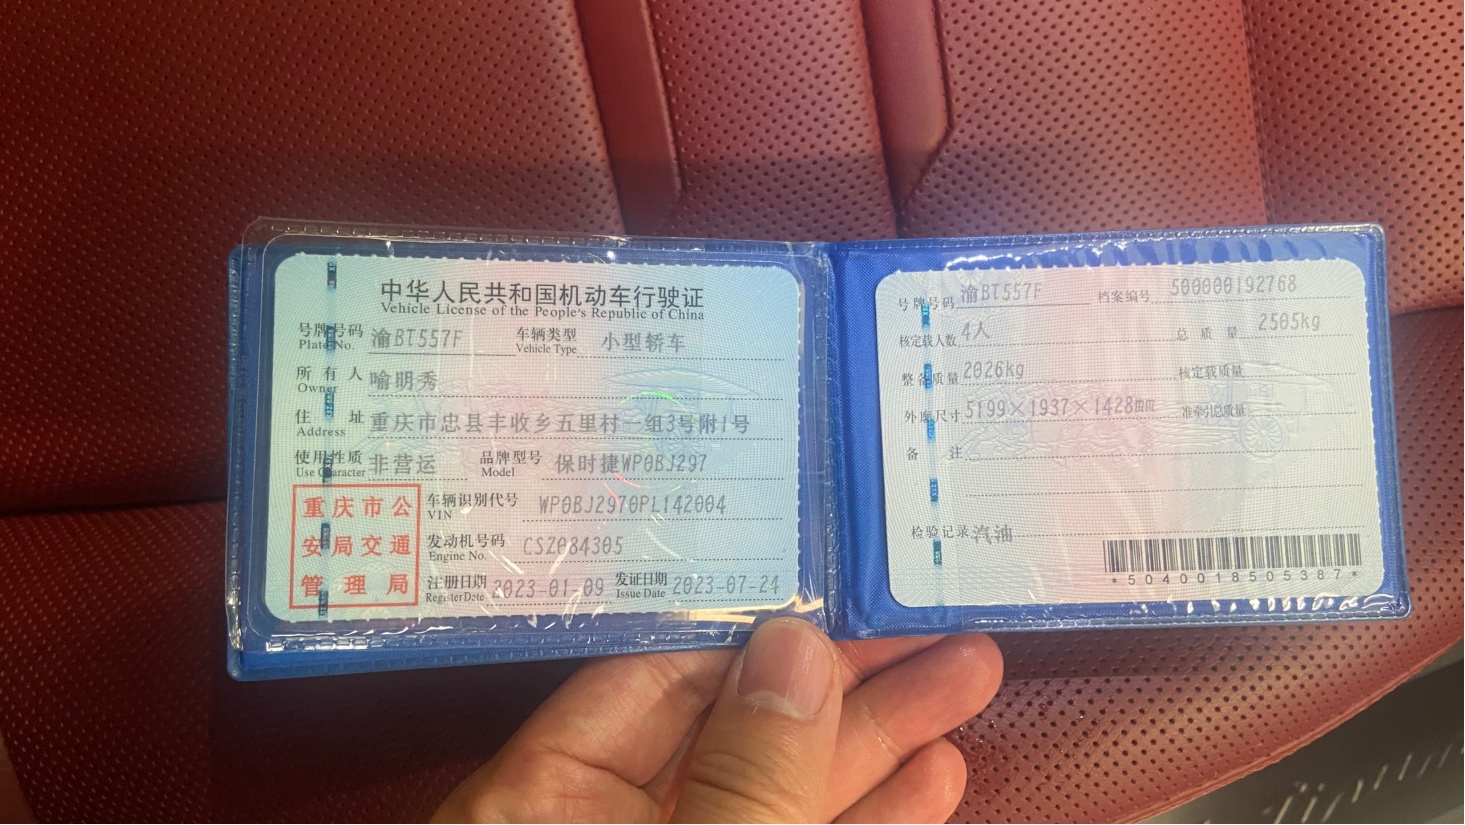 中华人民共和国机动车行驶证
Vehicle License of the People's Republic of China
号牌号码 渝BT557F 车辆类型 小型轿车
Plate No. Vehicle Type
所有人 喻明秀
Owner
住址 重庆市忠县丰收乡五里村一组3号附1号
Address
使用性质 非营运 品牌型号 保时捷WP0BJ297
Use Character Model
重庆市公
安局交通
管理局
车辆识别代号 WP0BJ2970PL142004
VIN
发动机号码 CSZ084305
Engine No.
注册日期 2023-01-09 发证日期 2023-07-24
Register Date Issue Date
号牌号码 渝BT557F 档案编号 500000192768
核定载人数 4人 总质量 2505kg
整备质量 2026kg 核定载质量
外廓尺寸 5199×1937×1428mm 准牵引总质量
备注
检验记录 汽油
*5040018505387*